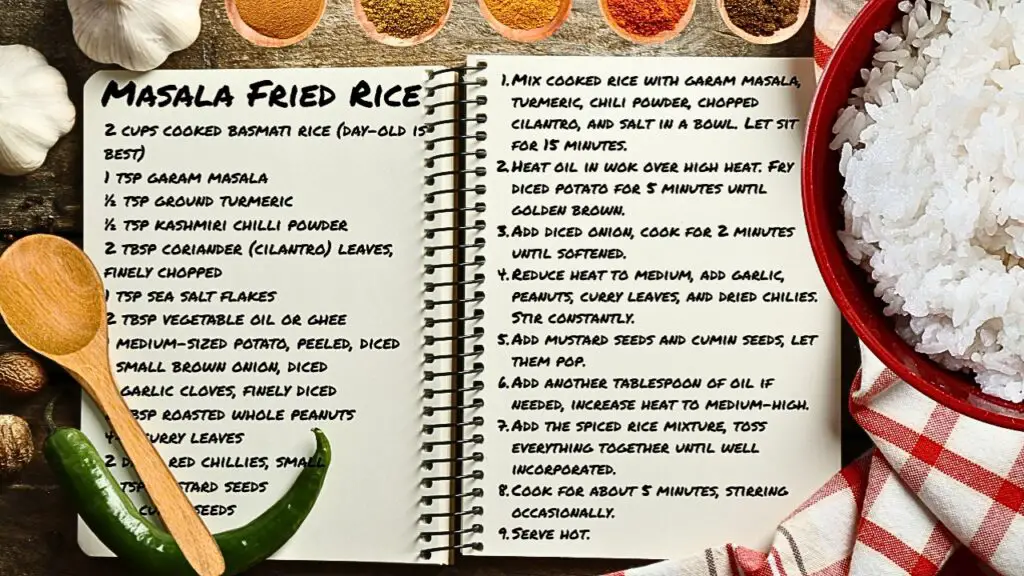 Masala Fried Rice
2 cups cooked basmati rice (day-old is
best)
1 tsp garam masala
½ tsp ground turmeric
½ tsp Kashmiri chilli powder
2 tbsp coriander (cilantro) leaves,
finely chopped
1 tsp sea salt flakes
2 tbsp vegetable oil or ghee
medium-sized potato, peeled, diced
small brown onion, diced
garlic cloves, finely diced
roasted whole peanuts
curry leaves
2 red chillies, small
seeds
seeds
1. Mix cooked rice with garam masala,
turmeric, chili powder, chopped
cilantro, and salt in a bowl. Let sit
for 15 minutes.
2. Heat oil in wok over high heat. Fry
diced potato for 5 minutes until
golden brown.
3. Add diced onion, cook for 2 minutes
until softened.
4. Reduce heat to medium, add garlic,
peanuts, curry leaves, and dried chilies.
Stir constantly.
5. Add mustard seeds and cumin seeds, let
them pop.
6. Add another tablespoon of oil if
needed, increase heat to medium-high.
7. Add the spiced rice mixture, toss
everything together until well
incorporated.
8. Cook for about 5 minutes, stirring
occasionally.
9. Serve hot.